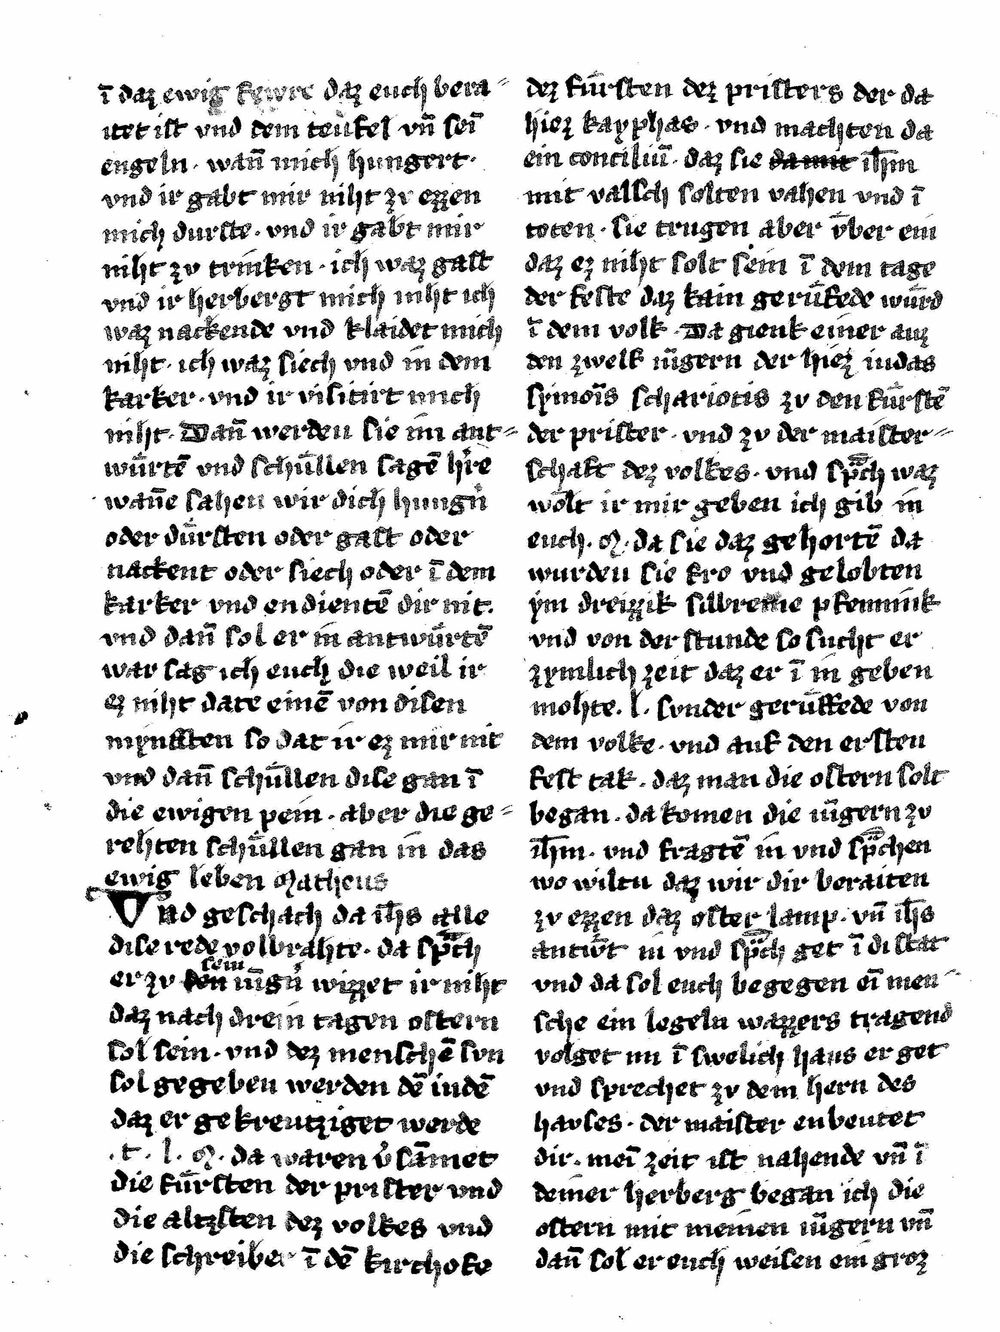 ī daz ewig fewre daz euch bera⸗
itet ist vnd dem teufel vn̄ sei̅
engeln · wan̄ mich hungert ·
vnd ir gabt mir niht zv ezzen
mich durste · vnd ir gabt mir
niht zv trinken · ich waz gast
vnd ir herbergt mich niht ich
waz nackende vnd klaidet mich
niht · ich waz siech vnd in dem
karker · vnd ir visitirt mich
niht · Dan̄ werden sie im ant⸗
wu̍rtē vnd schu̍llen sagē h̍re
wan̄e sahen wir dich hung̍n
oder du̍rsten oder gast oder
nackent oder siech oder ī dem
karker vnd en dientē dir nit.
vnd dan̄ sol er in antwu̍rtē
war sag ich euch die weil ir
ez niht date einē von disen
mynsten so dat ir ez mir nit
vnd dan̄ schu̍llen dise gan ī
die ewigen pein · aber die ge⸗
rehten schu̍llen gan in das
ewig leben Matheus
Vnd geschach da ih̄s alle
dise rede volbrahte · da sp̄ch
er zv den sein iu̅g̍n wizzet ir niht
daz nach drein tagen ostern
sol sein · vnd dez menschē svn
sol gegeben werden dē iudē
daz er gekreutziget werde
· t · l · m · da waren v̍sāmet
die fu̍rsten der prister vnd
die altzsten dez volkes vnd
die schreiber ī dē kirchofe
dez fu̍rsten dez pristers der da
hiez kayphas · vnd machten da
ein conciliū · daz sie da mit ih̄m
mit valsch solten vahen vnd ī
toten · sie trugen aber v̍ber ein
daz ez niht solt sein ī dem tage
der feste daz kain geru̍fede wu̍rd
ī dem volk · Da gienk einer auz
den zwelf iu̅gern der hiez iudas
symōis schariotis zv den fu̍rstē
der prister · vnd zv der maister⸗
schaft dez volkes · vnd sp̄ch waz
wolt ir mir geben ich gib in
euch · m · da sie daz gehortē da
wurden sie fro vnd gelobten
ym dreizzik silbreine pfennink
vnd von der stunde so sucht er
zymlich zeit daz er ī in geben
mohte · l · svnder geru̍ffede von
dem volke · vnd auf den ersten
fest tak · daz man die ostern solt
began · da komen die iu̅gern zv
ih̄m · vnd fragtē in vnd sp̄chen
wo wiltu daz wir dir beraiten
zv ezzen daz oster lamp · vn̄ ih̄s
antwrt in vnd sp̄ch get ī di stat
vnd da sol euch begegen ei̅ men⸗
sche ein legeln wazzers tragend
volget im ī swelich haus er get
vnd sprechet zv dem hern des
hauses · der maister enbeutet
dir · mei̅ zeit ist nahende vn̄ ī
deiner herberg began ich die
ostern mit meinen iu̅gern vn̄
dan̄ sol er euch weisen ein groz